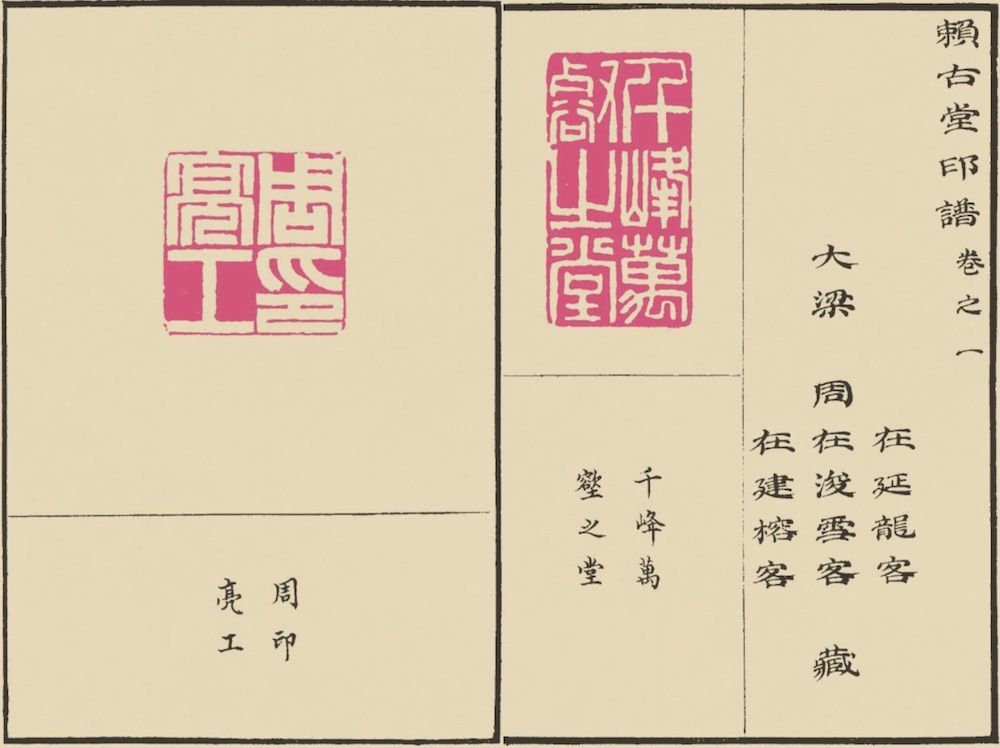 賴古堂印譜 卷之一
在延龍客
大梁 周在浚雪客 藏
在建榕客
千峰萬
壑之堂
千峰萬
壑之堂
周印
亮工
周印
亮工